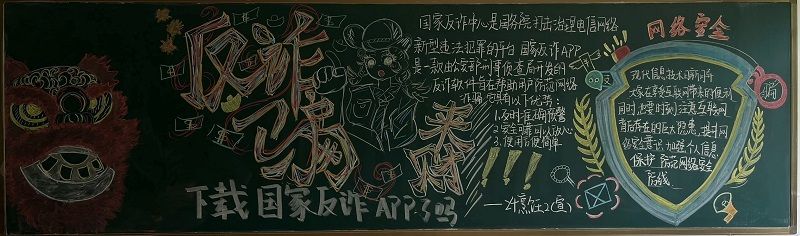 反诈
来财
下载国家反诈APP了吗
国家反诈中心是国务院打击治理电信网络
新型违法犯罪的平台 国家反诈APP
是一款由公安部刑事侦查局开发的
反诈软件旨在帮助用户防范网络
诈骗 它具有以下优势:
1.及时准确预警
2.安全可以放心
3.使用方便简单
网络安全
现代信息技术
大家在享受互联网带来的便利
同时,也要时刻注意互联网
背后带来的巨大隐患,提升网
络安全意识,加强个人信息
保护 防范网络安全
防线
骗